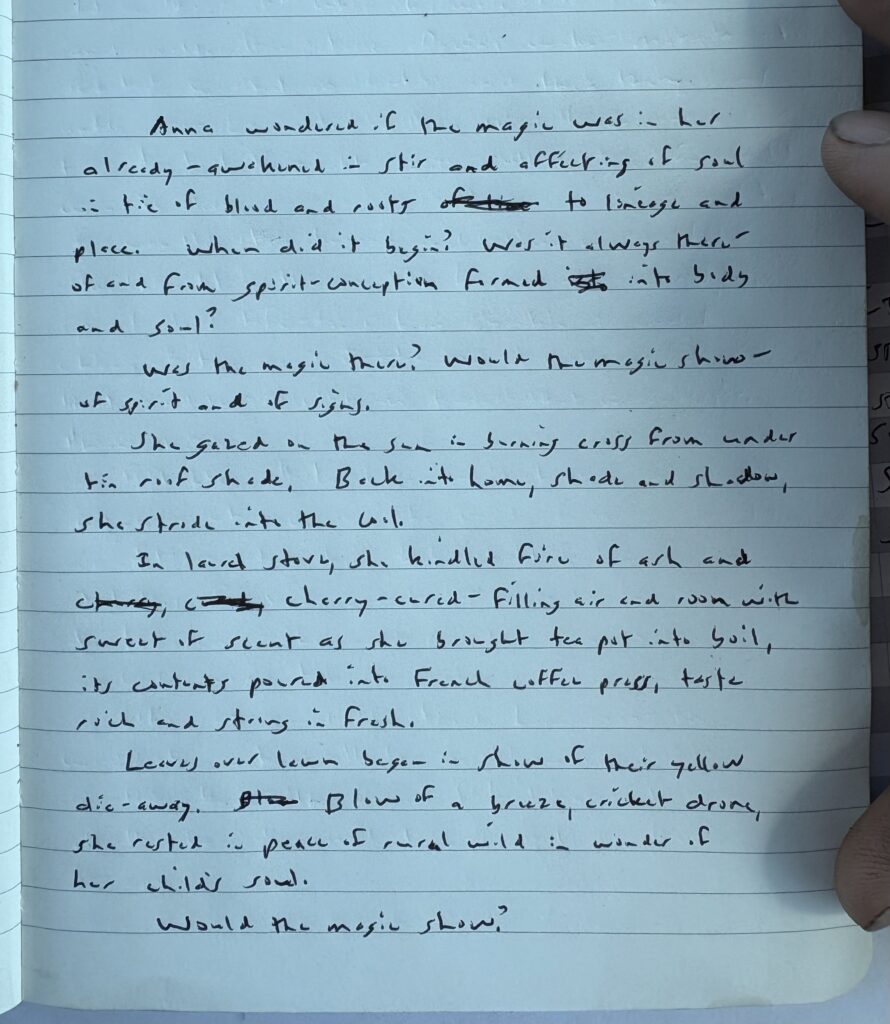 Anna wondered if the magic was in her
already-awakened in stir and affecting of soul
in tie of blood and roots to lineage and
place. When did it begin? Was it always there-
of and from spirit-conception formed into body
and soul?
Was the magic there? Would the magic show-
of spirit and of signs.
She gazed on the sun in burning cross from under
tin roof shade. Back into home, shade and shadow,
she strode into the cool.
In stove, she kindled fire of ash and
cherry-cured-filling air and room with
sweet of scent as she brought tea pot into boil,
its contents poured into French coffee press, taste
rich and strong in fresh.
Leaves over lawn began in show of their yellow
die-away. Blow of a breeze, cricket drone,
she rested in peace of rural wild in wonder of
her child's soul.
Would the magic show?